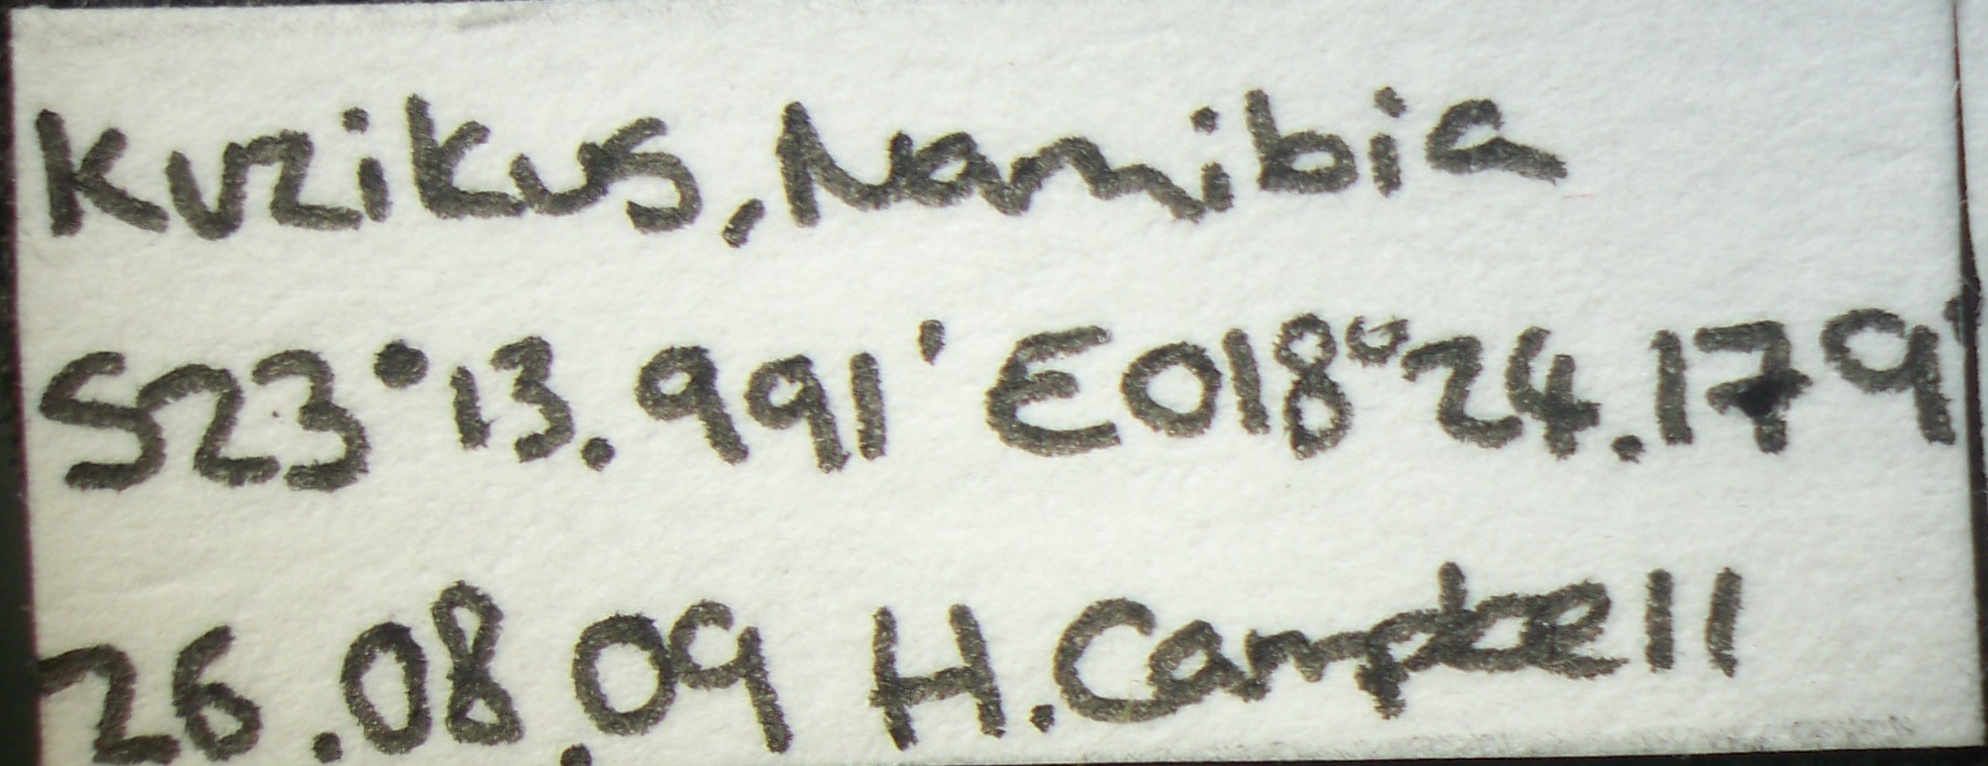 Kuzikus, Namibia
S23°13.991' E018°24.179'
26.08.09 H.Campbell